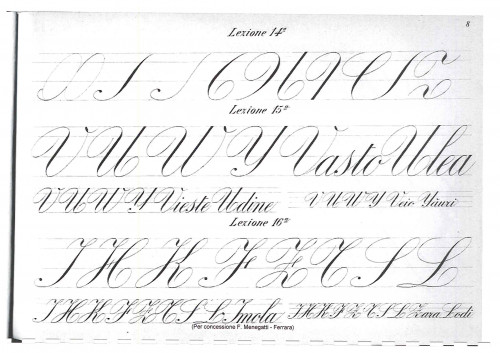 8
Lezione 14ª
Lezione 15ª
V U W Y Vasto Ulea
V U W Y Vieste Udine V U W Y Veio Yauri
Lezione 16ª
I H K F Z T S L
I H K F Z T S L Imola I H K F Z T S L Zara Lodi
(Per concessione F. Menegatti - Ferrara)